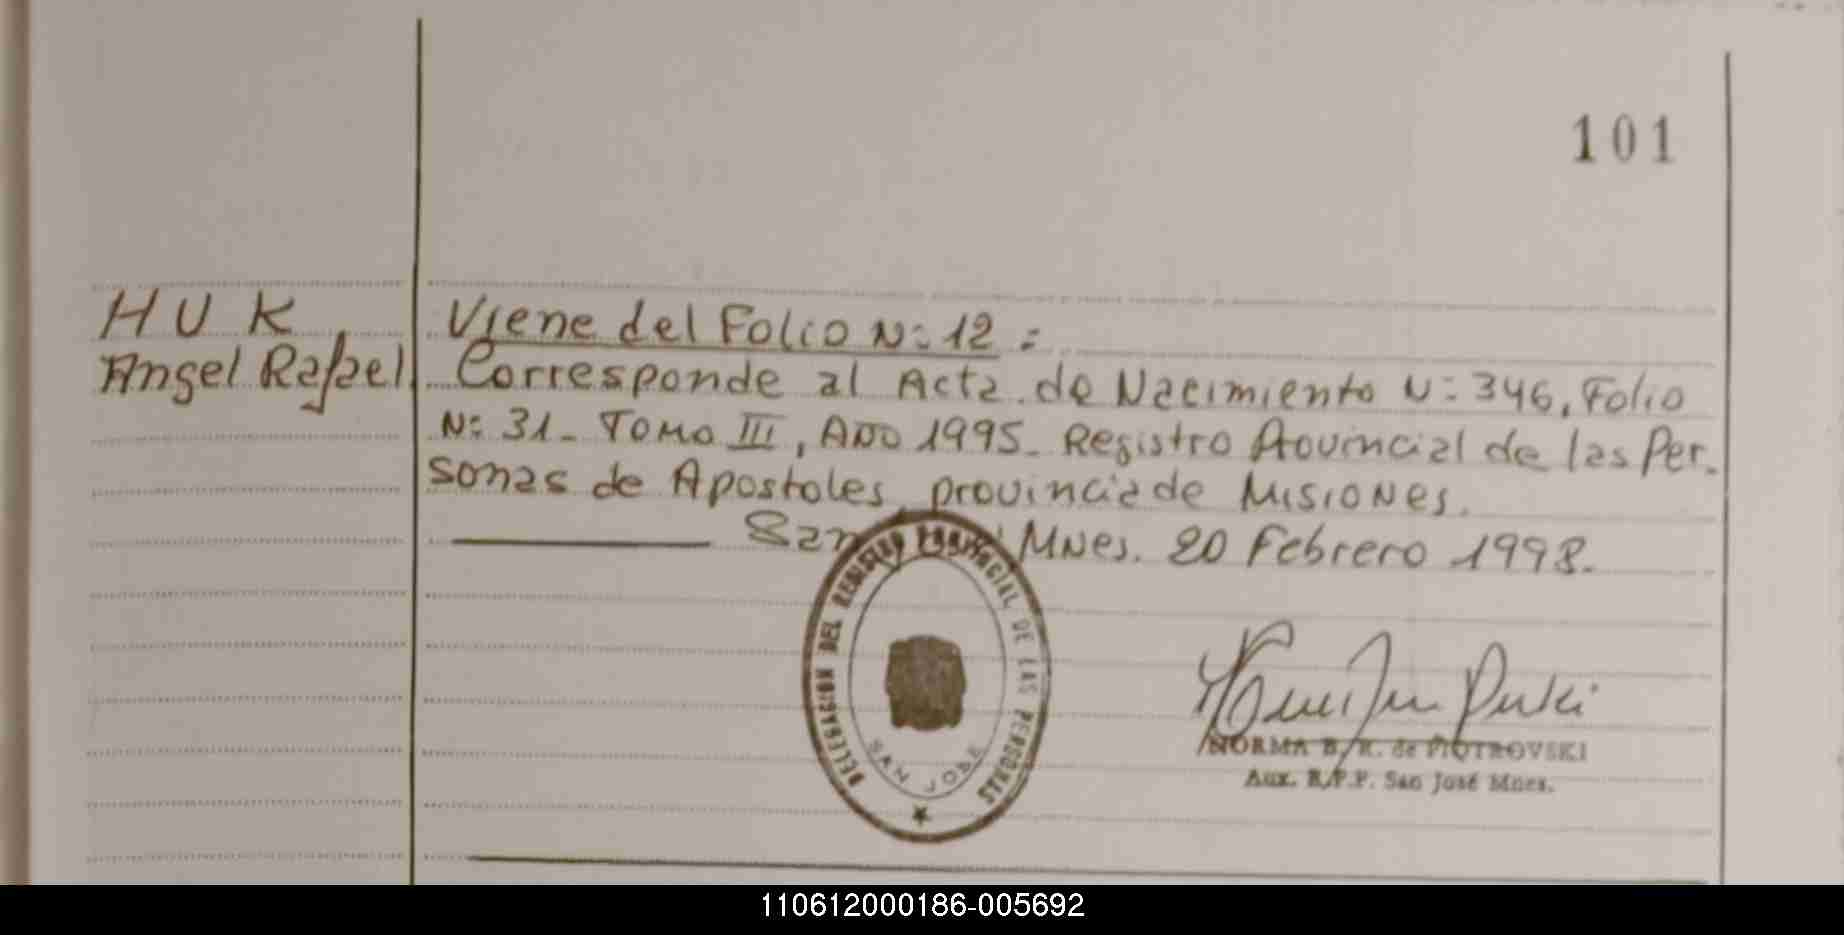 101
HUK
Angel Rafael.
Viene del Folio N: 12 :
Corresponde al Acta de Nacimiento N: 346, Folio
N: 31 - Tomo III, Año 1995 - Registro Provincial de las Per-
sonas de Apostoles provincia de Misiones.
San Mnes. 20 Febrero 1998.
DELEGACION DEL REGISTRO PROVINCIAL DE LAS PERSONAS
SAN JOSE
NORMA B. R. de PIOTROVSKI
Aux. R.P.P. San José Mnes.
110612000186-005692